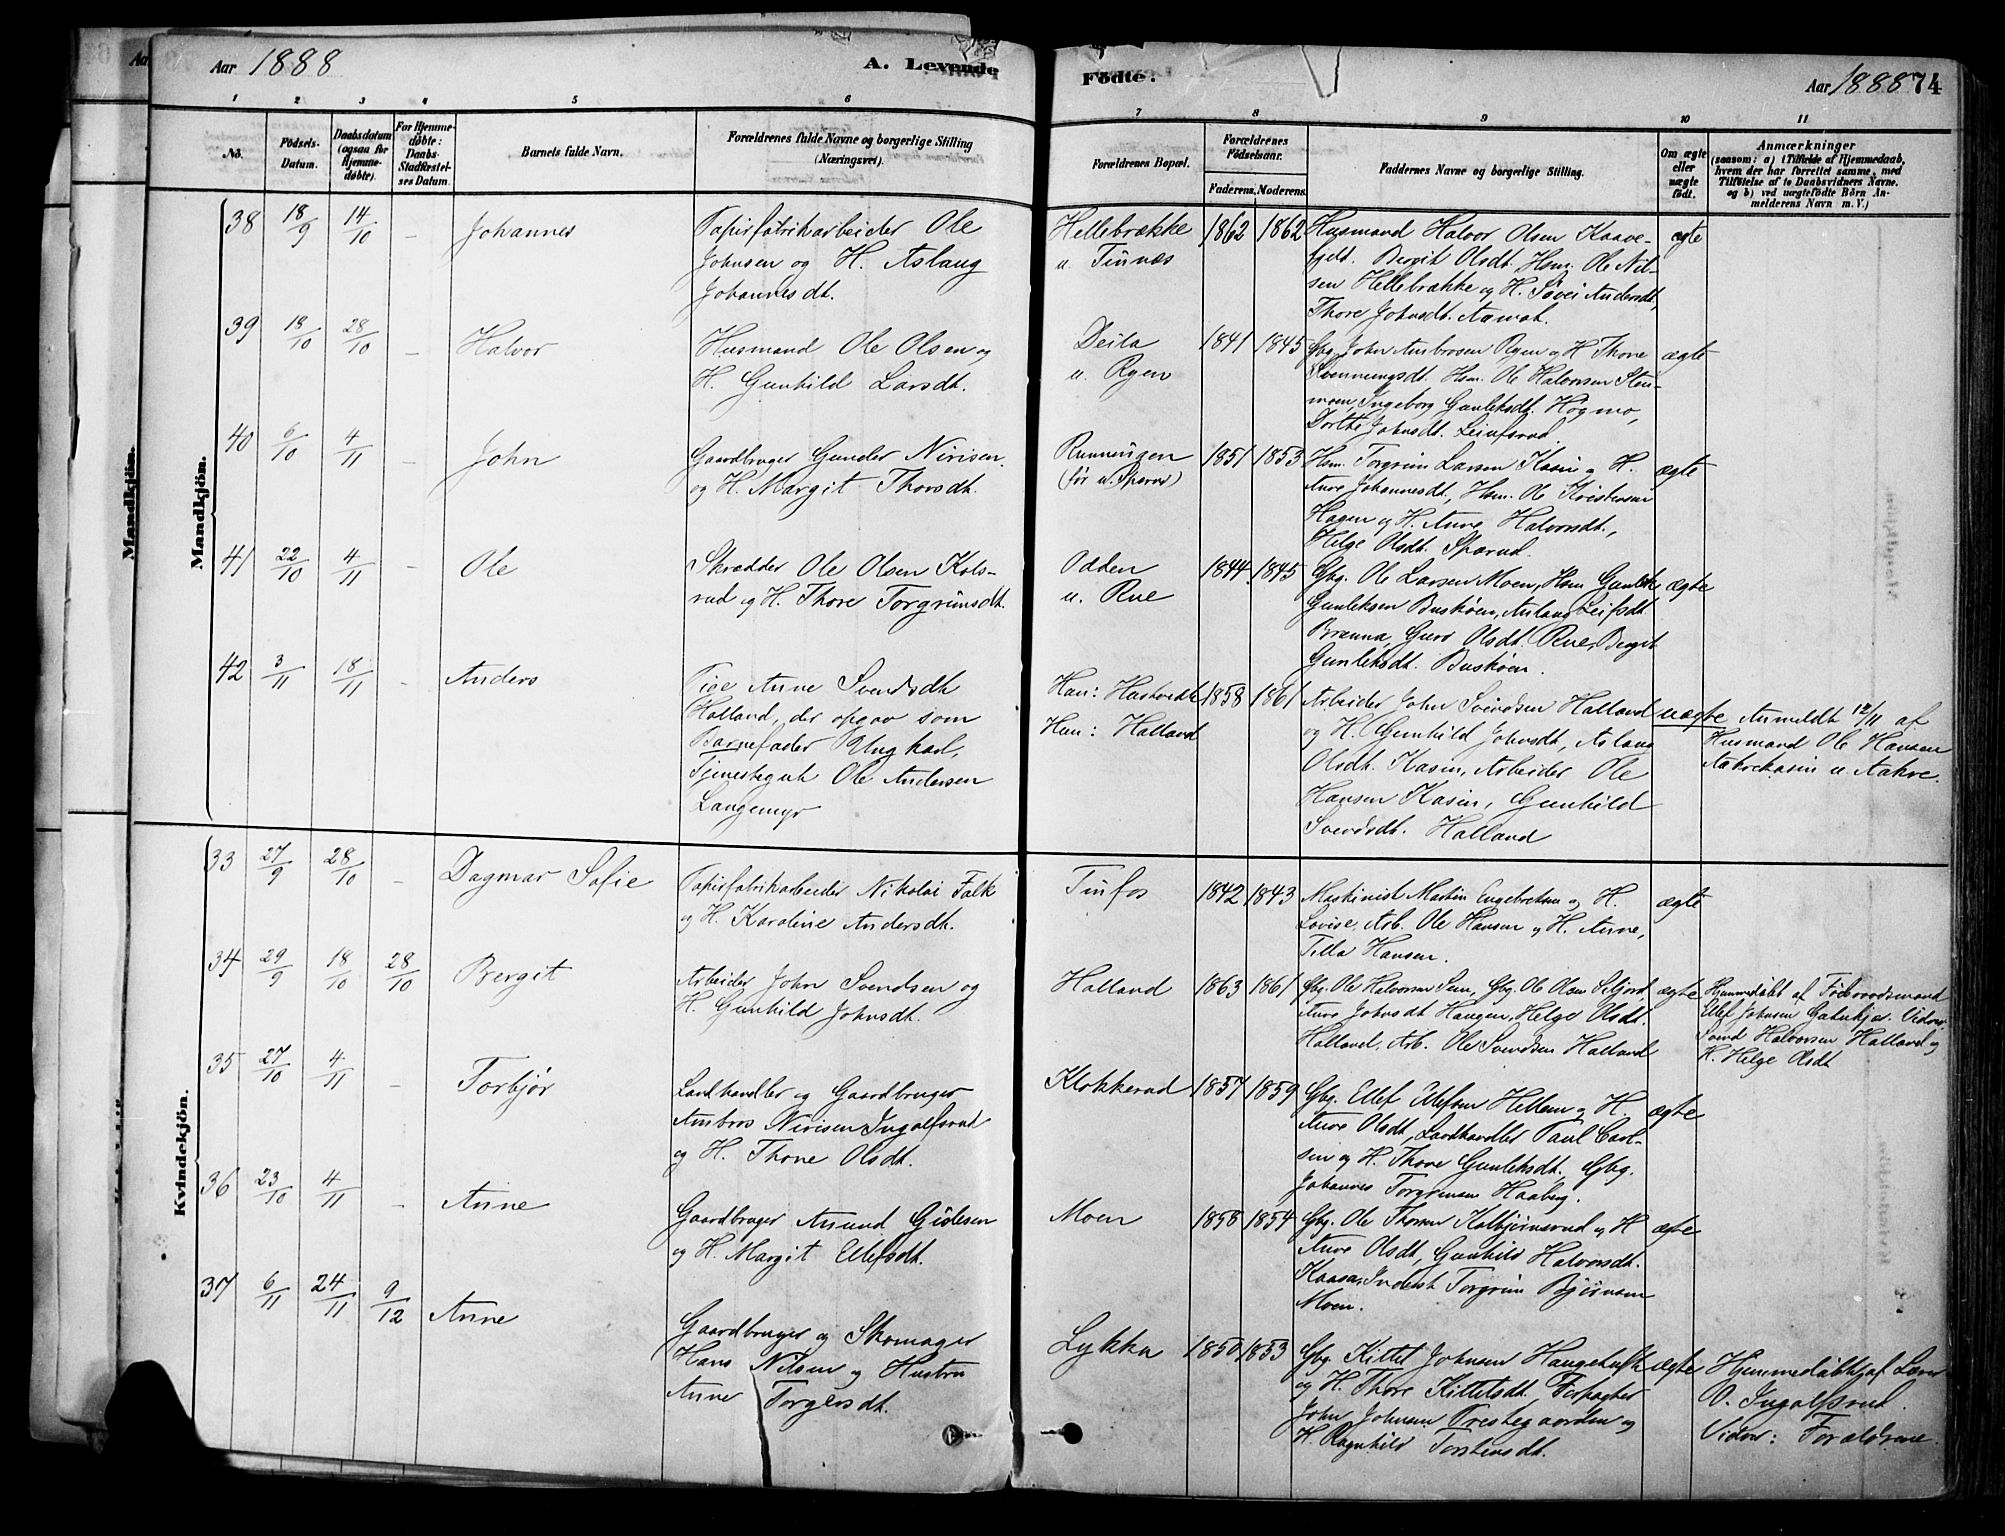 Aar 1888
A. Levende
Födte.
Aar 1888 74
1 2 3 4 5 6 7 8 9 10 11
No.
Födsels-
Datum.
Daabsdatum
(ogsaa for
Hjemme-
döbte).
For Hjemme-
döbte:
Daabs-
Stadfæstel-
ses Datum.
Barnets fulde Navn.
Forældrenes fulde Navne og borgerlige Stilling
(Næringsvei).
Forældrenes Bopæl.
Forældrenes
Födselsaar.
Faderens. Moderens.
Faddernes Navne og borgerlige Stilling.
Om ægte
eller
uægte
födt.
Anmærkninger
(saasom: a) i Tilfælde af Hjemmedaab,
hvem der har forrettet samme, med
Tilföielse af to Daabsvidners Navne.
og b) ved uægtefödte Börn An-
melderens Navn m. V.)
Mandkjön.
Mandkjön.
38 18/9 14/10 - Johannes
Papirfabrikarbeider Ole
Johnsen og H. Aslaug
Johannesdt.
Hellebrække
u. Tinnæs
1862 1862
Husmand Halvor Olsen Kaave-
fjeld. Bergit Olsdt. Hsm. Ole Nil-
sen Hellebrække og H. Søvei Andersdt,
Thore Johnsdt. Aamot.
ægte
39 18/10 28/10 - Halvor
Husmand Ole Olsen og
H. Gunhild Larsdt.
Deila
u. Ryen
1841 1845
Gbg. John Ambrosen Ryen og H Thone
Svennungsdt, Hsm. Ole Halvorsen Sten-
moen, Ingeborg Gunleksdt. Høgmo,
Dorthe Johnsdt. Leinfsrud.
ægte
40 6/10 4/11 - John
Gaardbruger Gunder Nirisen
og H. Margit Thorsdt.
Runningen
(før u. Sparud)
1851 1853
Hsm. Torgrim Larsen Kasin og H.
Anne Johannesdt, Hsm. Ole Kristensen
Hagen og H. Anne Halvorsdt.,
Helge Olsdt. Sparud.
ægte
41 22/10 4/11 - Ole
Skrædder Ole Olsen Kols-
rud og H. Thore Torgrimsdt.
Odden
u. Rue
1844 1845
Gbg. Ole Larsen Moen, Hsm Gunlek
Gunleksen Buskøen, Aslaug Leifsdt
Brenna, Guro Olsdt. Rue, Bergit
Gunleksdt. Buskøen.
ægte
42 3/11 18/11 - Anders
Pige Anne Svendsdt
Holland, der opgav som
Barnefader Ungkarl,
Tjenestegut Ole Andersen
Langemyr
Han: Hastvedt
Hun: Halland
1858 1861
Arbeider John Svendsen Halland
og H. Gunhild Johnsdt, Aslaug
Olsdt. Kasin, Arbeider Ole
Hansen Kasin, Gunhild
Svendsdt. Halland
uægte
Anmeldt 12/11 af
Husmand Ole Hansen
Aakrekasin u. Aakre.
Kvindekjön.
33 27/9 28/10 - Dagmar Sofie
Papirfabrikarbeider Nikolai Falk
og H. Karoline Andersdt.
Tinfos
1842 1843
Maskinist Martin Engebretsen og H.
Lovise, Arb. Ole Hansen og H. Anne,
Tilla Hansen.
ægte
34 29/9 18/10 28/10 Bergit
Arbeider John Svendsen og
H. Gunhild Johnsdt.
Halland
1863 1861
Gbg. Ole Halvorsen Sem, Gbg. Ole Olsen Seljord,
Anne Johnsdt Haugen, Helge Olsdt.
Halland, Arb. Ole Svendsen Halland
ægte
Hjemmedøbt af Forstandsmand
Ellef Johnsen Vidner
Svend Halvorsen Halland og
H. Helge Olsdt
35 27/10 4/11 - Torbjør
Landhandler og Gaardbruger
Ambros Nirisen Ingolfsrud
og H. Thone Olsdt.
Klokkerud
1857 1859
Gbg. Ellef Ellefsen Hellem og H.
Anne Olsdt, Landhandler Paul Carl-
sen og H. Thore Gunleksdt. Gbg.
Johannes Torgrimsen Haaberg.
ægte
36 23/10 4/11 - Anne
Gaardbruger Amund Gidesen
og H. Margit Ellefsdt.
Moen
1858 1854
Gbg. Ole Thorsen Kolbjørnsrud og H
Anne Olsdt, Gunhild Halvorsdt.
Kaasa, Inderst Torgrim Bjørnsen
Moen.
ægte
37 6/11 24/11 9/12 Anne
Gaardbruger og Skomager
Hans Nilsen og Hustru
Anne Torgersdt.
Lykka
1850 1853
Gbg. Kittel Johnsen Haugeholt
og H. Thore Kittelsdt. Forpagter
John Johnsen Prestegaarden og
H. Ragnhild Torstensdt.
ægte
Hjemmedøbt af Lars
O. Ingolfsrud.
Vidner: Forældrene.